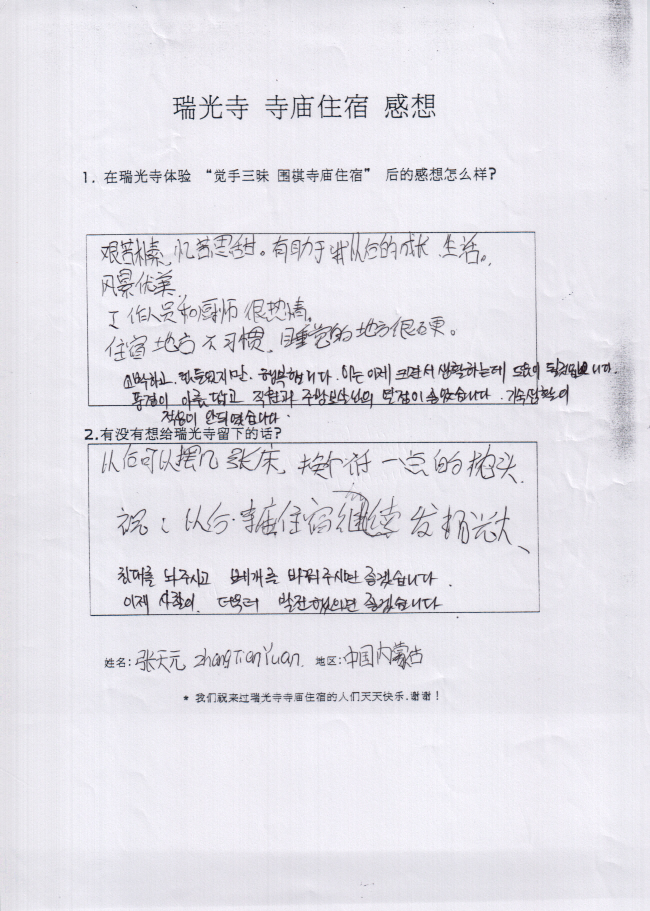 瑞光寺 寺庙住宿 感想
1. 在瑞光寺体验 “觉手三昧 围棋寺庙住宿” 后的感想怎么样?
艰苦朴素, 忆苦思甜。有助于我以后的成长 生活。
风景优美
工作人员和厨师很热情。
住宿地方不习惯, 睡觉的地方很硬。
소박하고, 힘들었지만, 행복합니다. 이는 이제 크면서 생활하는데 도움이 될것입니다.
풍경이 아름답고 직원과 주방보살님의 열정이 솟았습니다. 기숙생활이
적응이 안되었습니다.
2.有没有想给瑞光寺留下的话?
以后可以摆几张床, 换个好一点的枕头.
祝: 以后·寺庙住宿继续发扬光大、
침대를 놔주시고 베개를 바꿔주시면 좋겠습니다.
이제 사찰이. 더욱더 발전했으면 좋겠습니다
姓名: 张天元 zhangTianYuan. 地区: 中国内蒙古
* 我们祝来过瑞光寺寺庙住宿的人们天天快乐.谢谢!